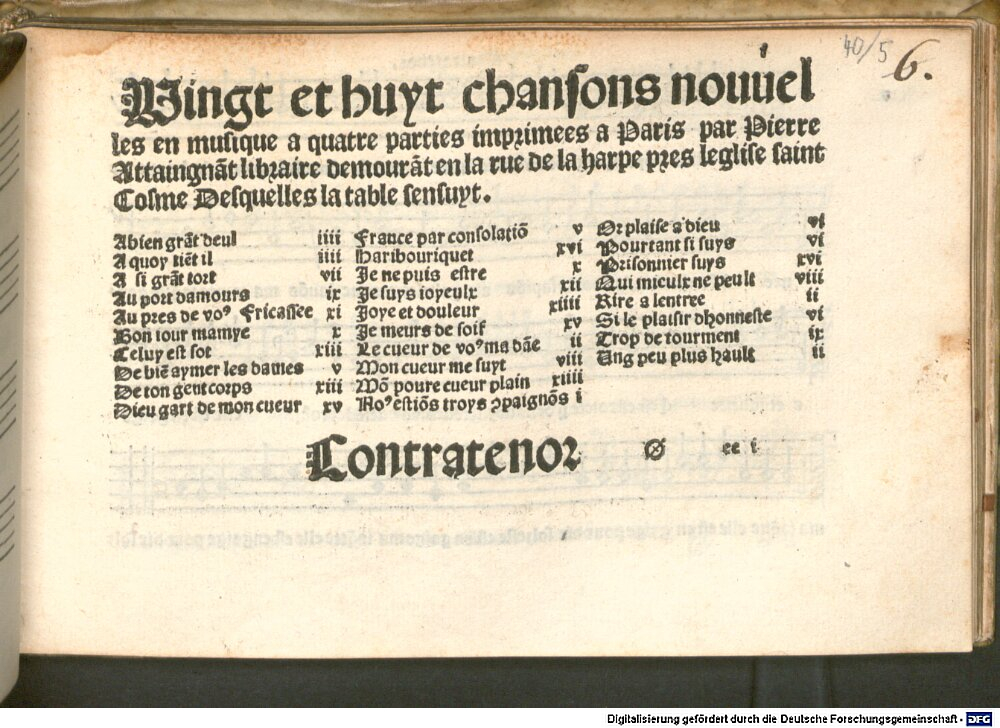 40/5 6.
Vingt et huyt chansons nouuel
les en musique a quatre parties imprimees a Paris par Pierre
Attaingnãt libraire demourãt en la rue de la harpe pres leglise saint
Cosme Desquelles la table sensuyt.
A bien grãt deul iiii
A quoy tiẽt il iiii
A si grãt tort vii
Au port damours ix
Au pres de voꝰ Fricassee xi
Bon iour mamye x
Celuy est sot xiii
De biẽ aymer les dames v
De ton gent corps xiii
Dieu gart de mon cueur xv
France par consolatiõ v
Haribouriquet xvi
Je ne puis estre x
Je suys ioyeulx xii
Joye et douleur xiiii
Je meurs de soif xv
Le cueur de voꝰ ma dãe ii
Mon cueur me suyt viii
Mõ poure cueur plain xiiii
Noꝰ estiõs troys ꝯpaignõs i
Or plaise a dieu vi
Pourtant si suys vi
Prisonnier suys xvi
Qui mieulx ne peult viii
Rire a lentree ii
Si le plaisir dhonneste vi
Trop de tourment ix
Ung peu plus hault ii
Contratenor ee i
Digitalisierung gefördert durch die Deutsche Forschungsgemeinschaft - DFG